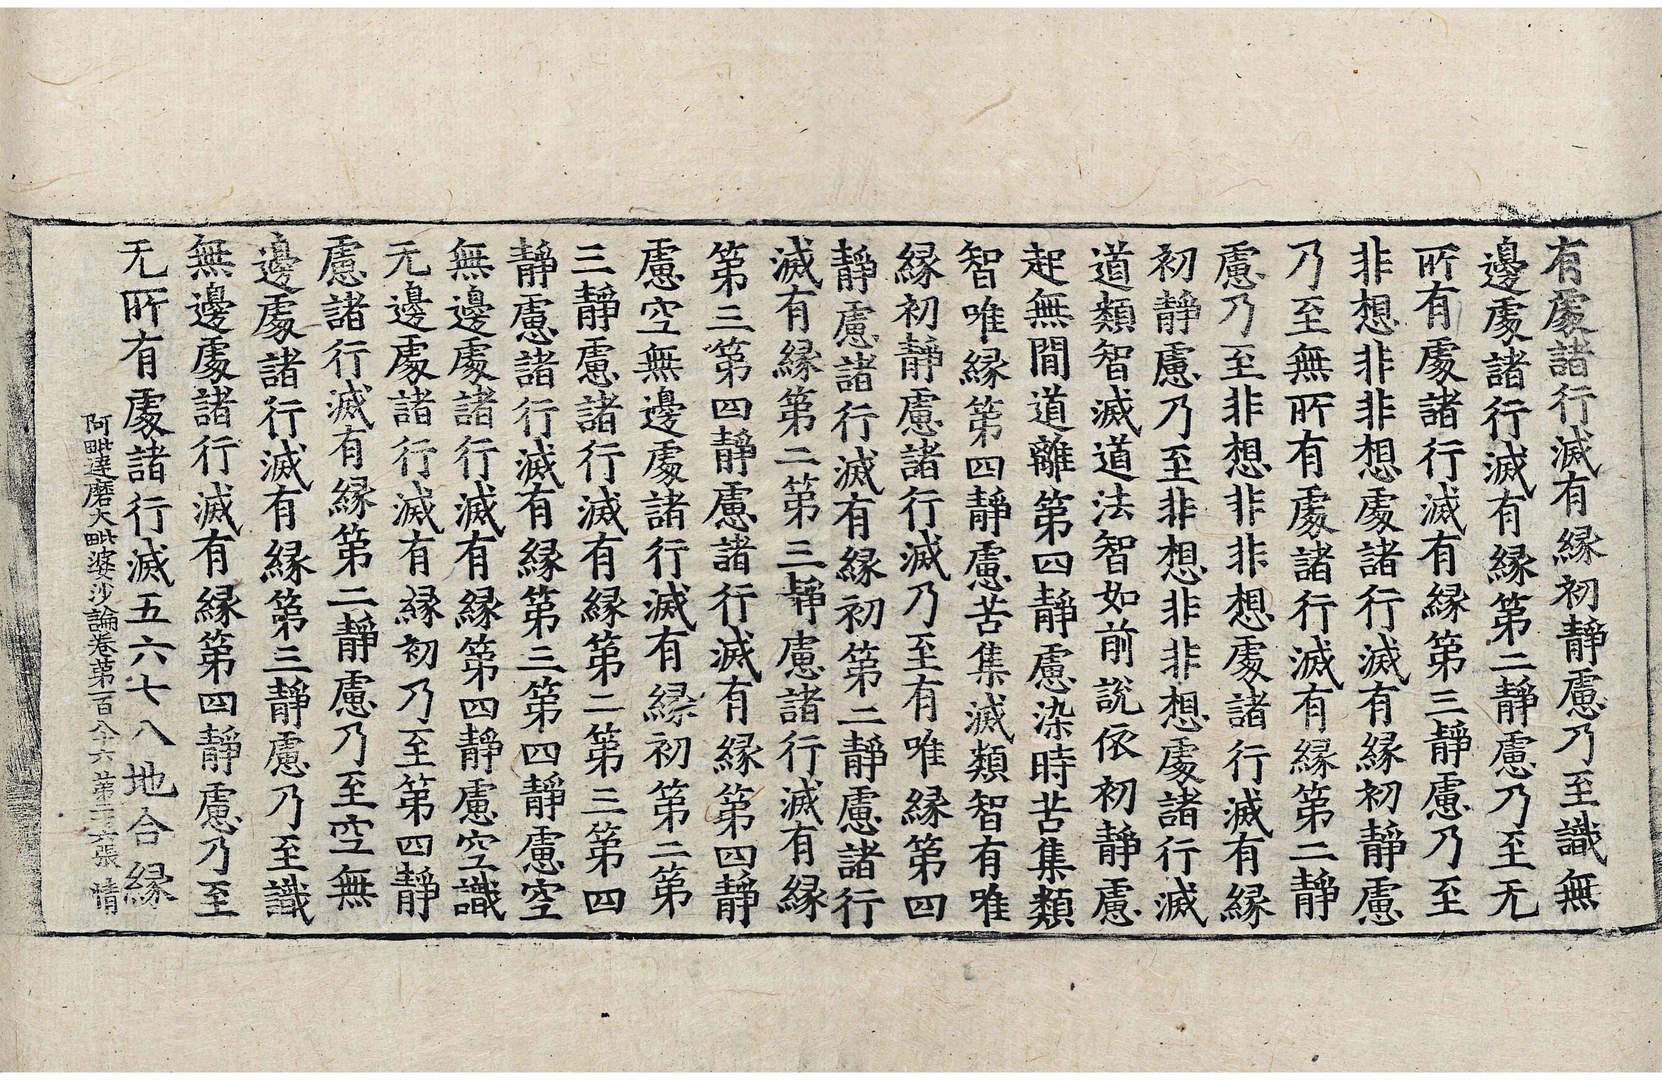 有處諸行滅有緣初靜慮乃至識無
邊處諸行滅有緣第二靜慮乃至无
所有處諸行滅有緣第三靜慮乃至
非想非非想處諸行滅有緣初靜慮
乃至無所有處諸行滅有緣第二靜
慮乃至非想非非想處諸行滅有緣
初靜慮乃至非想非非想處諸行滅
道類智滅道法智如前說依初靜慮
起無間道離第四靜慮染時苦集類
智唯緣第四靜慮苦集滅類智有唯
緣初靜慮諸行滅乃至有唯緣第四
靜慮諸行滅有緣初第二靜慮諸行
滅有緣第二第三靜慮諸行滅有緣
第三第四靜慮諸行滅有緣第四靜
慮空無邊處諸行滅有緣初第二第
三靜慮諸行滅有緣第二第三第四
靜慮諸行滅有緣第三第四靜慮空
無邊處諸行滅有緣第四靜慮空識
无邊處諸行滅有緣初乃至第四靜
慮諸行滅有緣第二靜慮乃至空無
邊處諸行滅有緣第三靜慮乃至識
無邊處諸行滅有緣第四靜慮乃至
无所有處諸行滅五六七八地合緣
阿毗達磨大毗婆沙論卷第百八十六 第二六張 晴